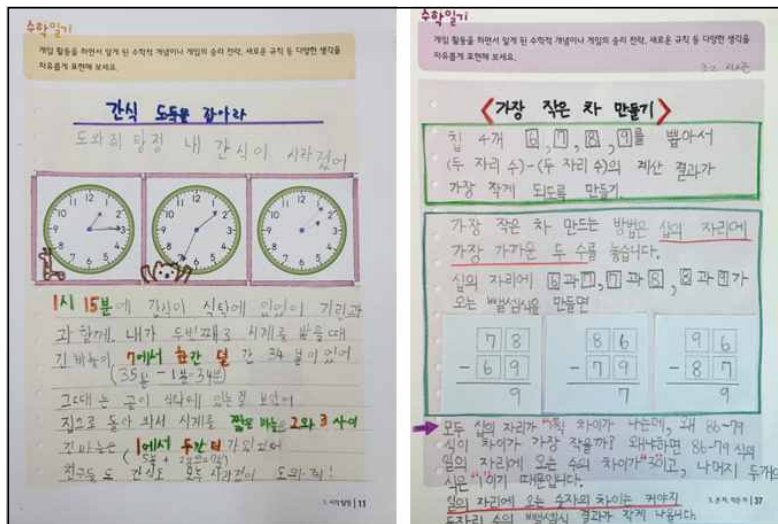 수학일기
게임 활동을 하면서 알게 된 수학적 개념이나 게임의 승리 전략, 새로운 규칙 등 다양한 생각을
자유롭게 표현해 보세요.
간식 도둑을 잡아라
도와줘 탐정 내 간식이 사라졌어
1시 15분에 간식이 식탁에 있었어 기린과
과 함께. 내가 두번째로 시계를 봤을 때
긴 바늘이 7에서 한칸 덜 간 34분이었어
(35분 - 1분 = 34분)
그때는 곰이 식탁에 있는걸 보았어
집으로 돌아 와서 시계를 짧은 바늘은 2와 3 사이
긴바늘은 1에서 두칸 더
친구들도 간식도 모두 사라졌어 도와줘!
11
수학일기
게임 활동을 하면서 알게 된 수학적 개념이나 게임의 승리 전략, 새로운 규칙 등 다양한 생각을
자유롭게 표현해 보세요.
<가장 작은 차 만들기>
칩 4개 6, 7, 8, 9를 뽑아서
(두 자리 수)-(두 자리 수)의 계산 결과가
가장 작게 되도록 만들기.
가장 작은 차 만드는 방법은 십의 자리에
가장 가까운 두 수를 놓습니다.
십의 자리에 6과 7, 7과 8, 8과 9가
오는 뺄셈식을 만들면
78 86 96
- 69 - 79 - 87
9 7 9
모두 십의 자리가 "1"씩 차이가 나는데, 왜 86-79
식이 차이가 가장 작을까? 왜냐하면 86-79 식의
일의 자리에 오는 수의 차이가 "3"이고, 나머지 두개의
식은 "1"이기 때문입니다.
일의 자리에 오는 숫자의 차이는 커야지
두자리 수의 뺄셈식 결과가 작게 나옵니다.
37